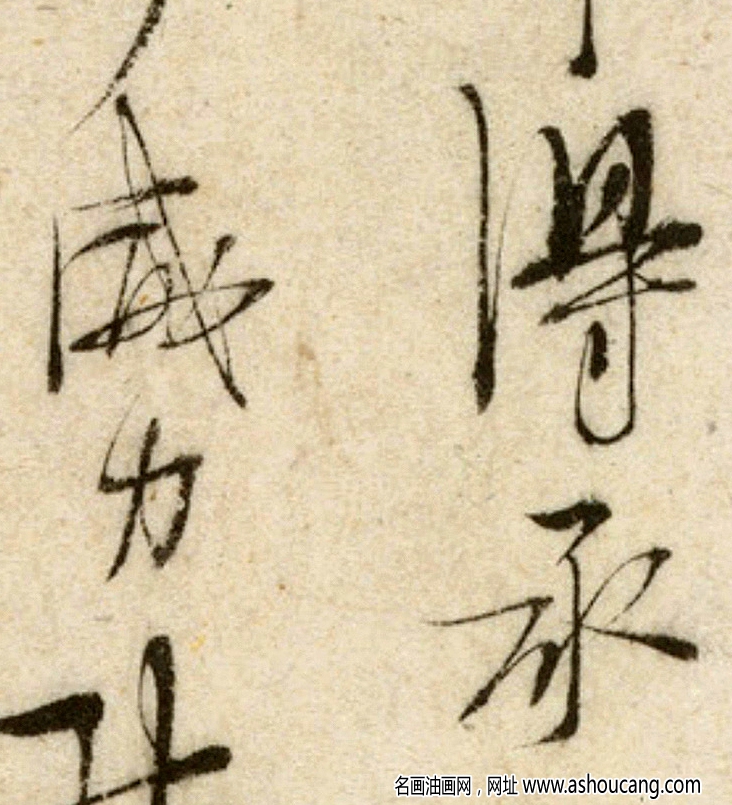 得承
威力
名画油画网，网址 www.ashoucang.com